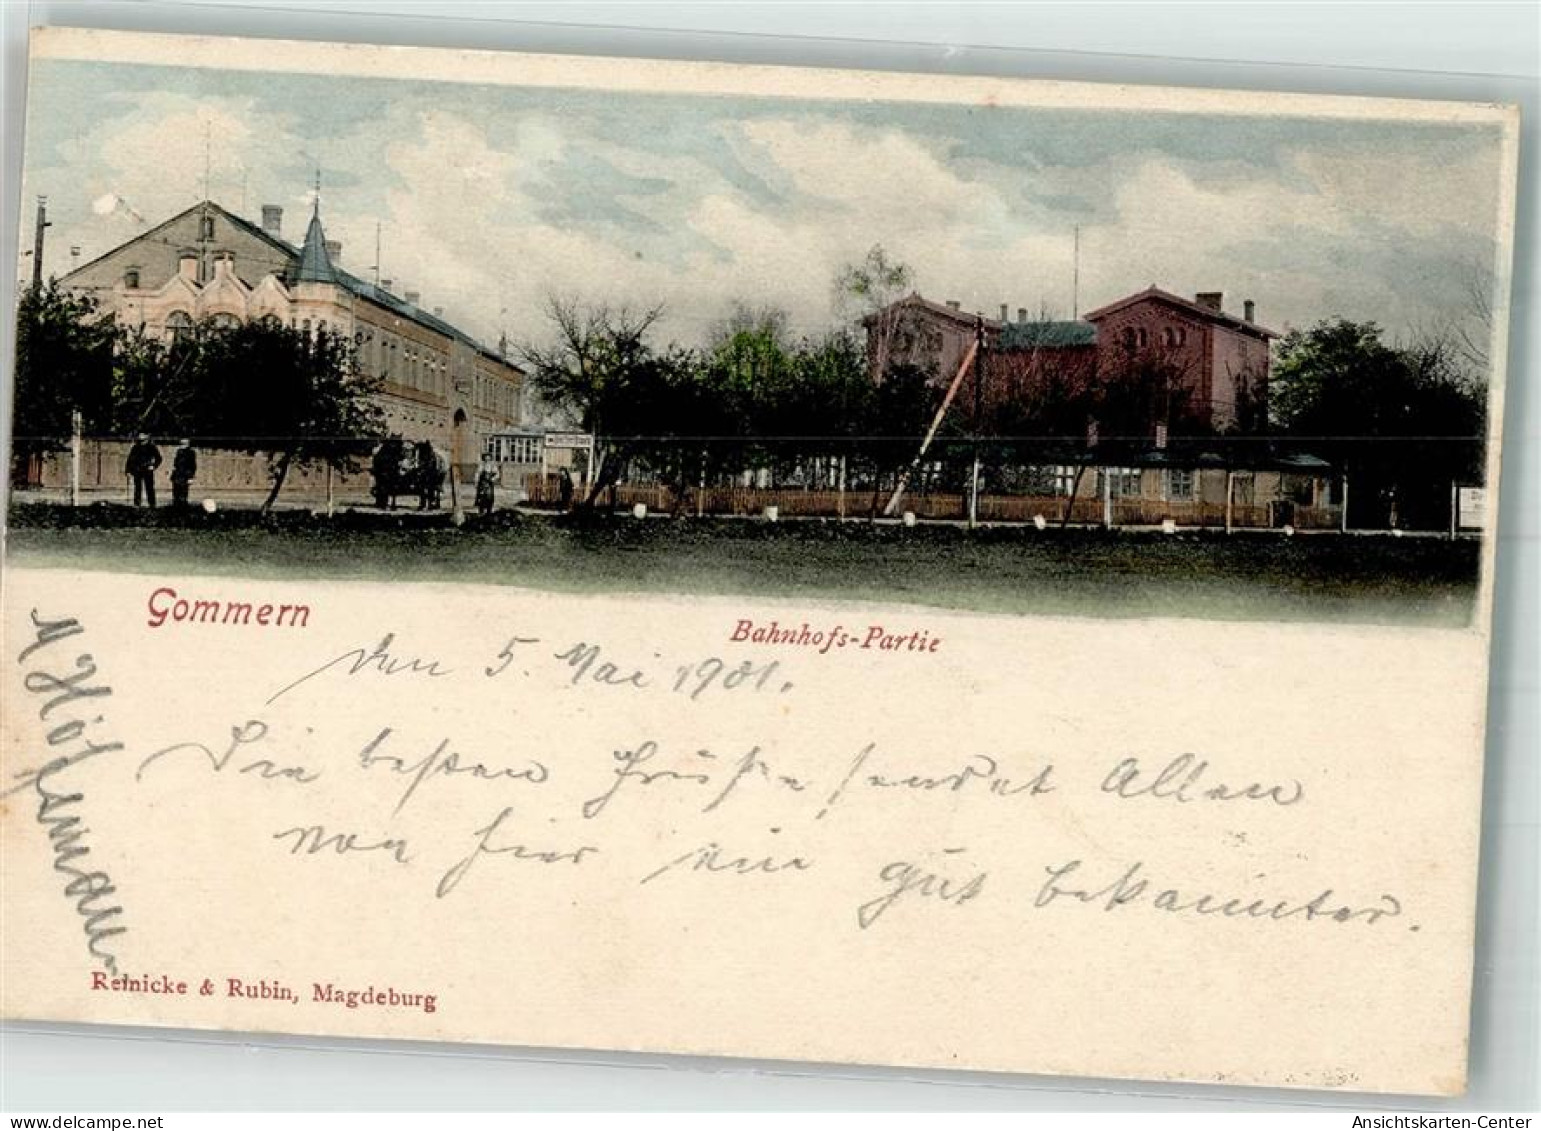 Gommern
Bahnhofs-Partie
den 5. Mai 1901.
Die besten Grüße sendet Allen
von hier ein gut bekannter.
Reinicke & Rubin, Magdeburg
Ansichtskarten-Center